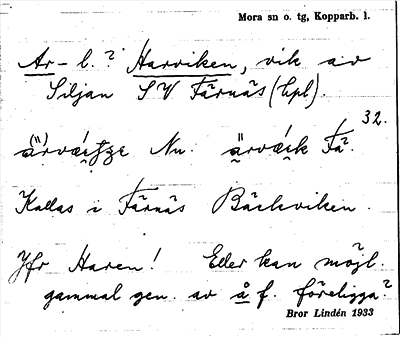 Mora sn o. tg, Kopparb. l.
Ar- l.? Harviken, vik av
Siljan SV Färnäs (hpl).
32.
Nu. Fä.
Kallas i Färnäs Bäckviken.
Jfr Haren! Eller kan möjl.
gammal gen. av å f. föreligga?
Bror Lindén 1933